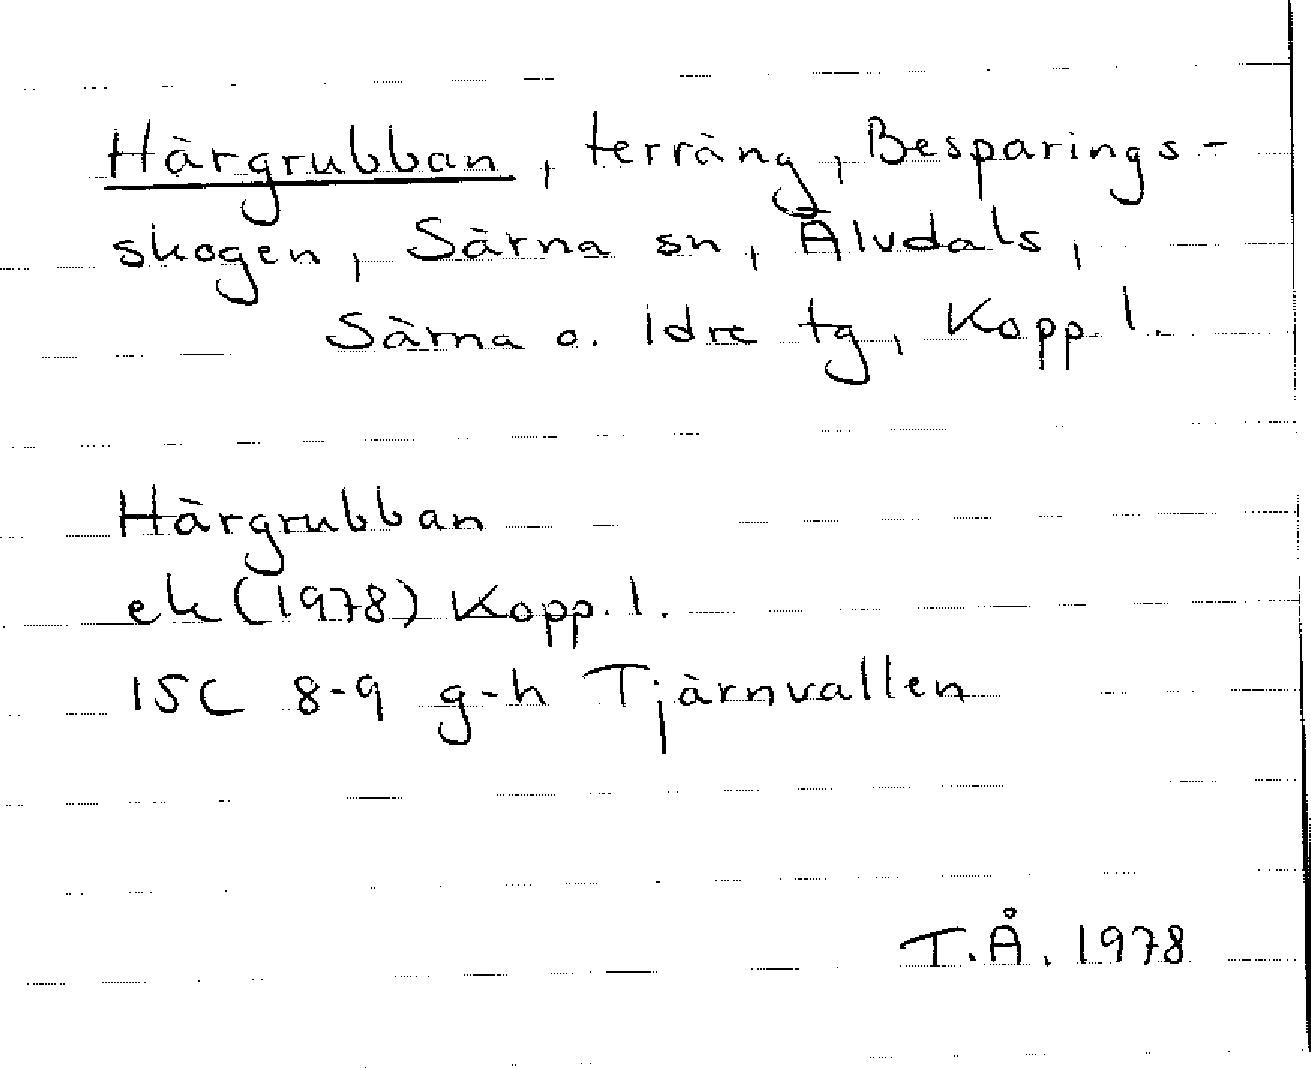 Härgrubban, terräng, Besparings-
skogen, Särna sn, Älvdals,
Särna o. Idre tg, Kopp. l.
Härgrubban
ek (1978) Kopp. l.
15C 8-9 g-h Tjärnvallen
T.Å. 1978